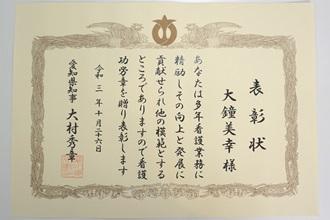 表彰状
大鐘美幸様
あなたは多年看護業務に
精励しその向上と発展に
貢献せられ他の模範とする
ところでありますので看護
功労章を贈り表彰します
令和三年十月二十六日
愛知県知事 大村秀章